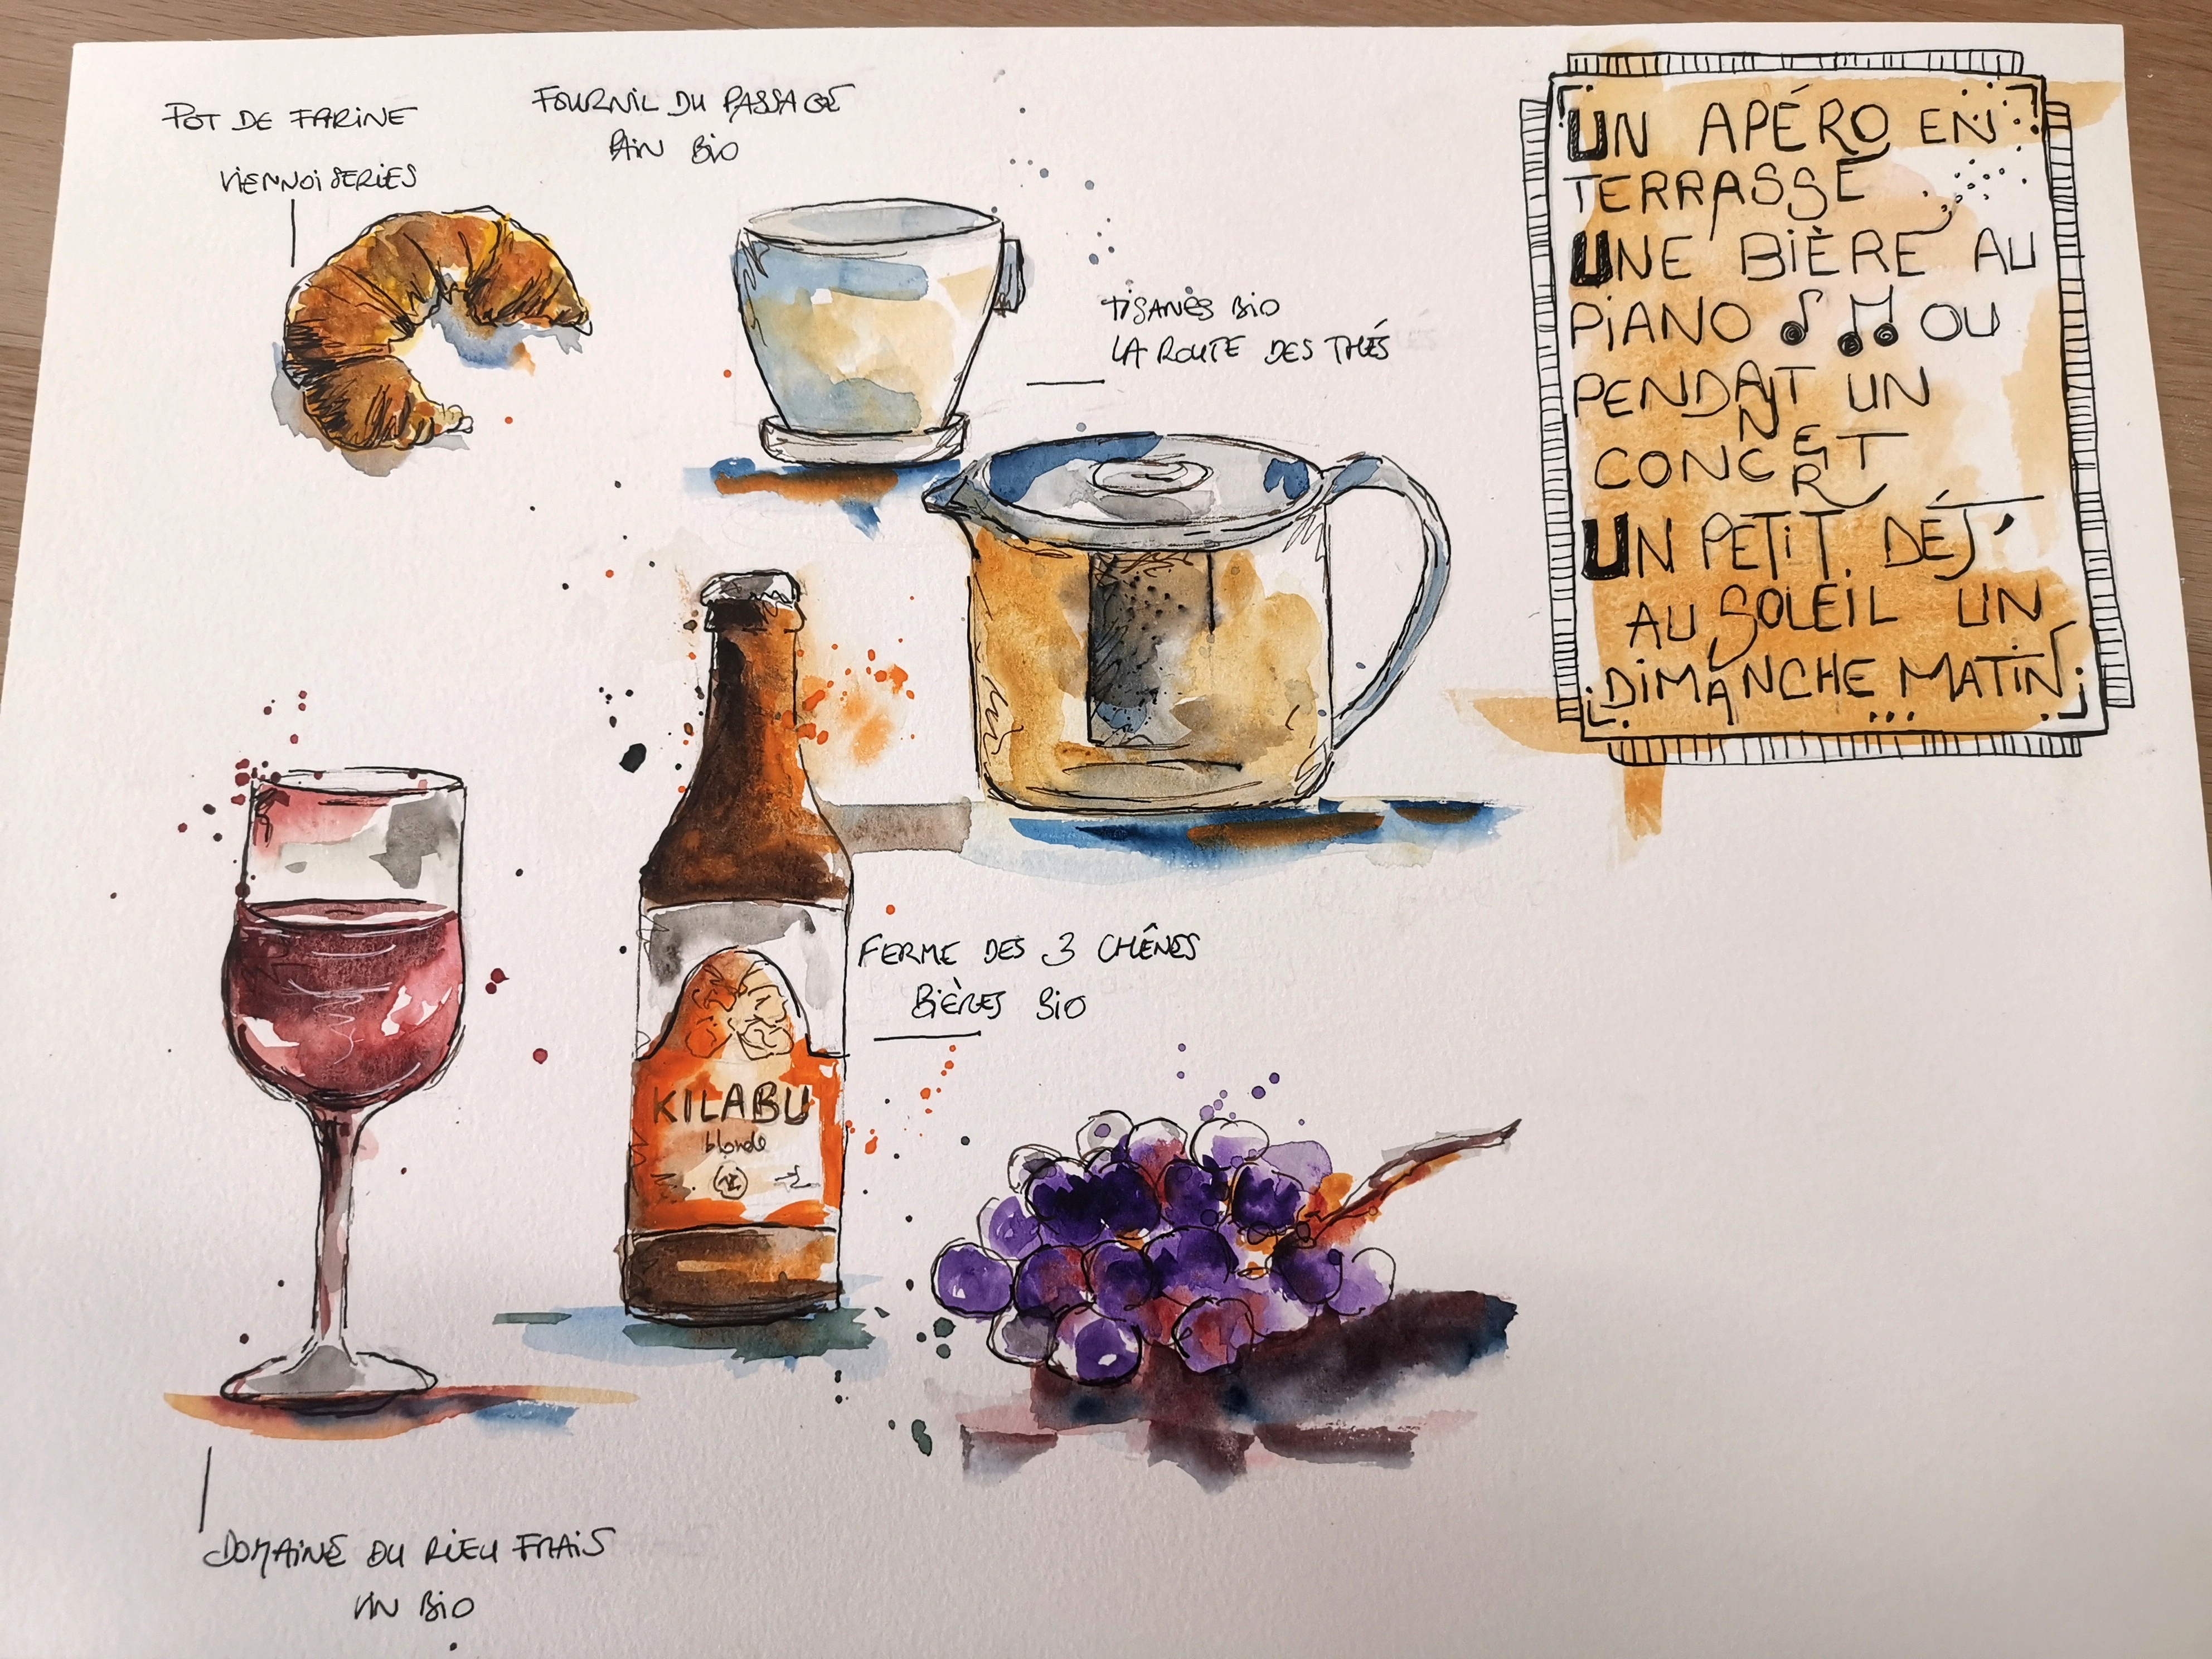 POT DE FARINE
VIENNOISERIES
FOURNIL DU PASSAGE
PAIN BIO
TISANES BIO
LA ROUTE DES THÉS
UN APÉRO EN
TERRASSE
UNE BIÈRE AU
PIANO OU
PENDANT UN
CONCERT
UN PETIT DÉJ'
AU SOLEIL UN
DIMANCHE MATIN
...
FERME DES 3 CHÊNES
BIÈRES BIO
KILABU
blonde
DOMAINE DU RIEU FRAIS
VIN BIO